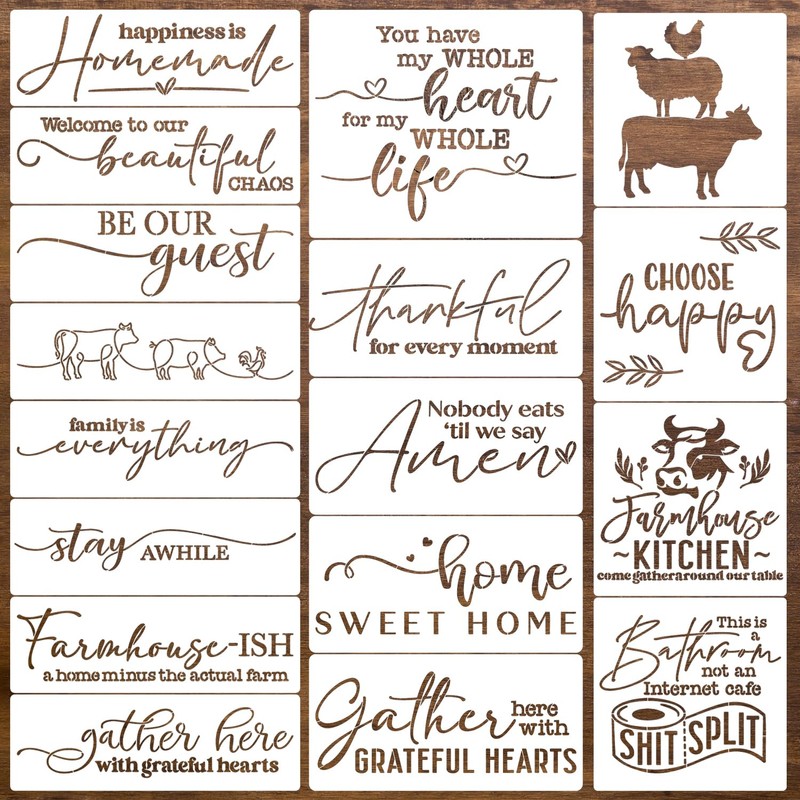 happiness is
Homemade
Welcome to our
beautiful
CHAOS
BE OUR
guest
family is
everything
stay AWHILE
Farmhouse-ISH
a home minus the actual farm
gather here
with grateful hearts
You have
my WHOLE
heart
for my
WHOLE
life
thankful
for every moment
Nobody eats
'til we say
Amen
home
SWEET HOME
Gather here
with
GRATEFUL HEARTS
CHOOSE
happy
Farmhouse
~KITCHEN~
come gather around our table
This is
a
Bathroom
not an
Internet cafe
SHIT SPLIT